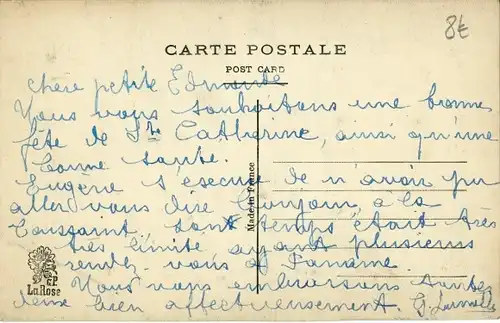 8€
CARTE POSTALE
POST CARD
Chère petite Edmonde
Nous vous souhaitons une bonne
fête de Ste Catherine, ainsi qu'une
bonne santé.
Eugène s'excuse de n'avoir pu
aller vous dire bonjour, à la
Toussaint, son temps était très
très limité ayant plusieurs
rendez-vous à Paname.
Nous vous embrassons toutes
deux bien affectueusement
Made in France
EP
La Rose